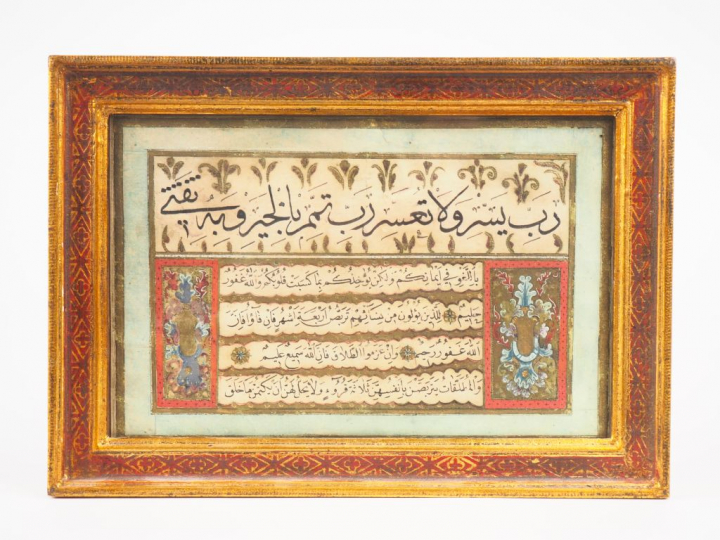 رب يسر ولا تعسر رب تمم بالخير وبه ثقتي
باللغو في ايمانكم ولكن يؤاخذكم بما كسبت قلوبكم والله غفور
حليم للذين يؤلون من نسائهم تربص اربعة اشهر فان فاؤا فان
الله غفور رحيم وان عزموا الطلاق فان الله سميع عليم
والمطلقات يتربصن بانفسهن ثلاثة قروء ولا يحل لهن ان يكتمن ما خلق